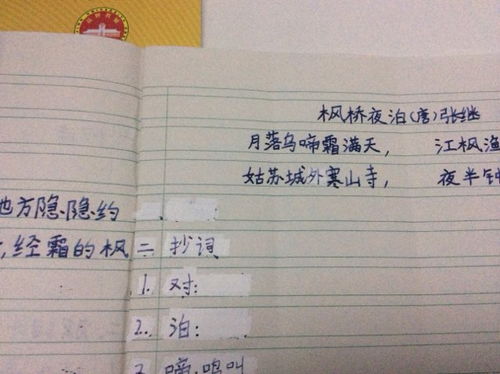 枫桥夜泊(唐)张继
月落乌啼霜满天， 江枫渔
姑苏城外寒山寺， 夜半钟
地方隐隐约
，经霜的枫
二 抄词
1. 对：
2. 泊：
3 啼：鸣叫